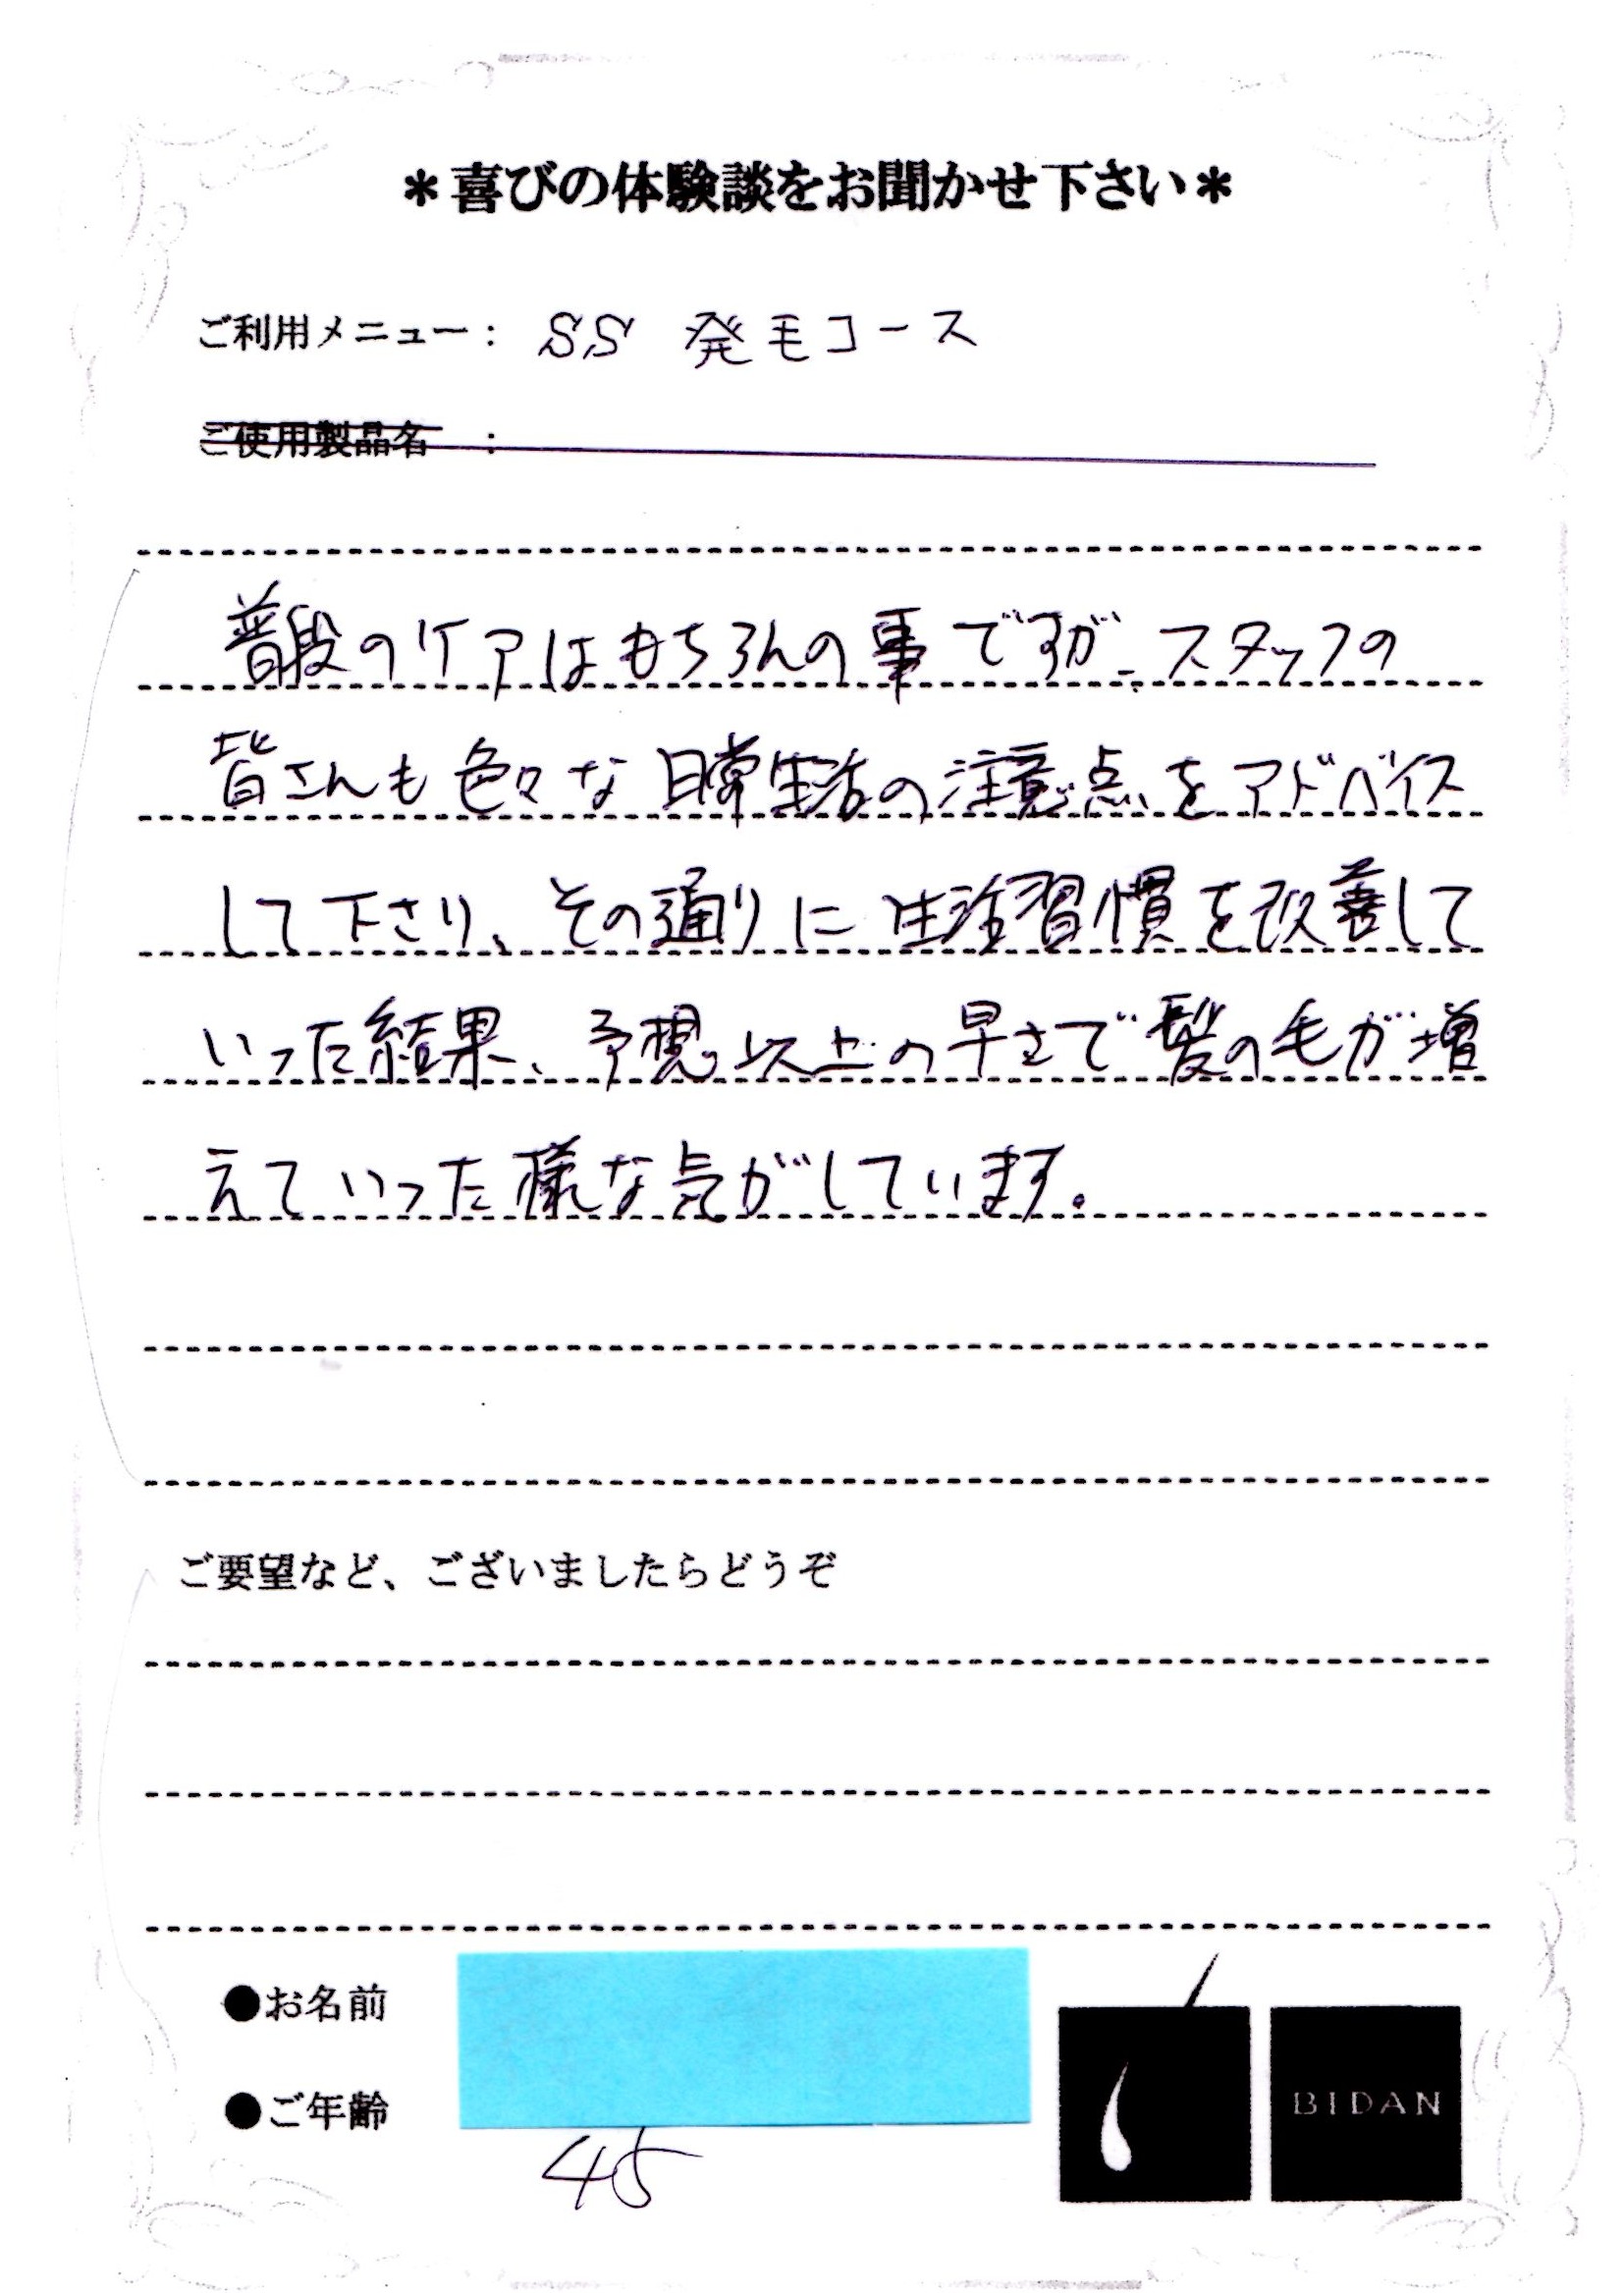 ＊喜びの体験談をお聞かせ下さい＊
ご利用メニュー： SS 発毛コース
ご使用製品名 ：
普段のケアはもちろんの事ですが、スタッフの
皆さんも色々な日常生活の注意点をアドバイス
して下さり、その通りに生活習慣を改善して
いった結果、予想以上の早さで髪の毛が増
えていった様な気がしています。
ご要望など、ございましたらどうぞ
●お名前
●ご年齢
45
BIDAN